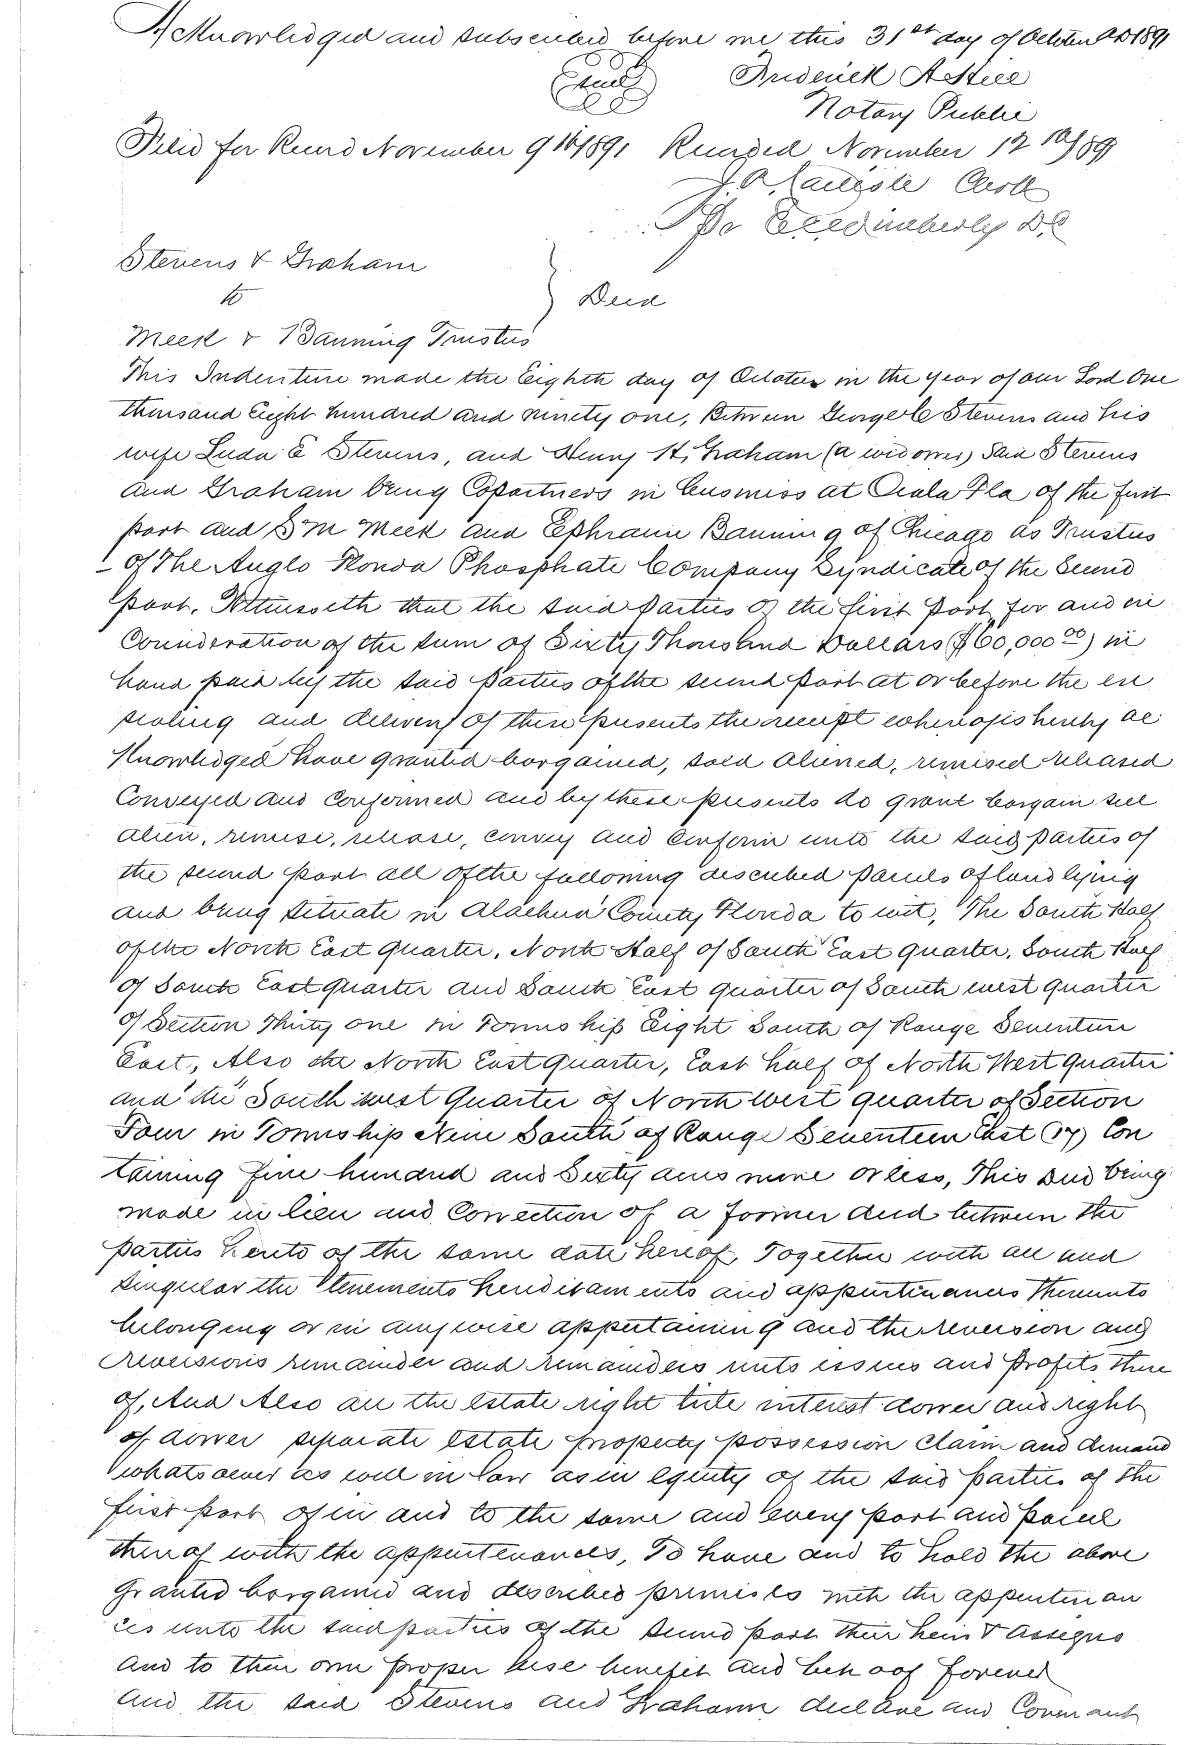 Acknowledged and subscribed before me this 31st day of October AD 1891
Seal
Frederick A Hill
Notary Public
Filed for Record November 9th 1891 Recorded November 12th 1891
J. A. Carlisle Clerk
Per Wimberly D.C.
Stevens & Graham
to
Deed
Meek & Banning Trustees
This Indenture made the Eighth day of October in the year of our Lord One
thousand Eight hundred and ninety one, Between George C Stevens and his
wife Luda E Stevens, and Henry H, Graham (a widower) Said Stevens
and Graham being Copartners in business at Ocala Fla of the first
part and S M Meek and Ephraim Banning of Chicago as Trustees
of The Anglo Florida Phosphate Company Syndicate of the Second
part. Witnesseth that the said parties of the first part for and in
Consideration of the sum of Sixty Thousand Dollars ($60,000.00) in
hand paid by the said parties of the second part at or before the en
sealing and delivery of these presents the receipt whereof is hereby ac
knowledged have granted bargained, sold aliened, remised released
Conveyed and Confirmed and by these presents do grant bargain sell
alien, remise, release, convey and Confirm unto the said parties of
the second part all of the following described parcels of land lying
and being situate in Alachua County Florida to wit, The South Half
of the North East quarter, North Half of South East quarter, South Half
of South East quarter and South East quarter of South west quarter
of Section Thirty one in Township Eight South of Range Seventeen
East, Also the North East quarter, East half of North West quarter
and the South west Quarter of North West quarter of Section
Four in Township Nine South of Range Seventeen East (17) Con
taining five hundred and Sixty acres more or less, This Deed being
made in lieu and Correction of a former deed between the
parties hereto of the same date hereof, Together with all and
singular the tenements hereditaments and appurtenances thereunto
belonging or in anywise appertaining and the reversion and
reversions remainder and remainders rents issues and profits there
of, And Also all the estate right title interest dower and right
of dower separate estate property possession Claim and demand
whatsoever as well in law as in equity of the said parties of the
first part of in and to the same and every part and parcel
thereof with the appurtenances, To have and to hold the above
Granted bargained and described premises with the appurtenan
ces unto the said parties of the second part their heirs & assigns
and to their own proper use benefit and behoof forever
And the said Stevens and Graham declare and Covenant